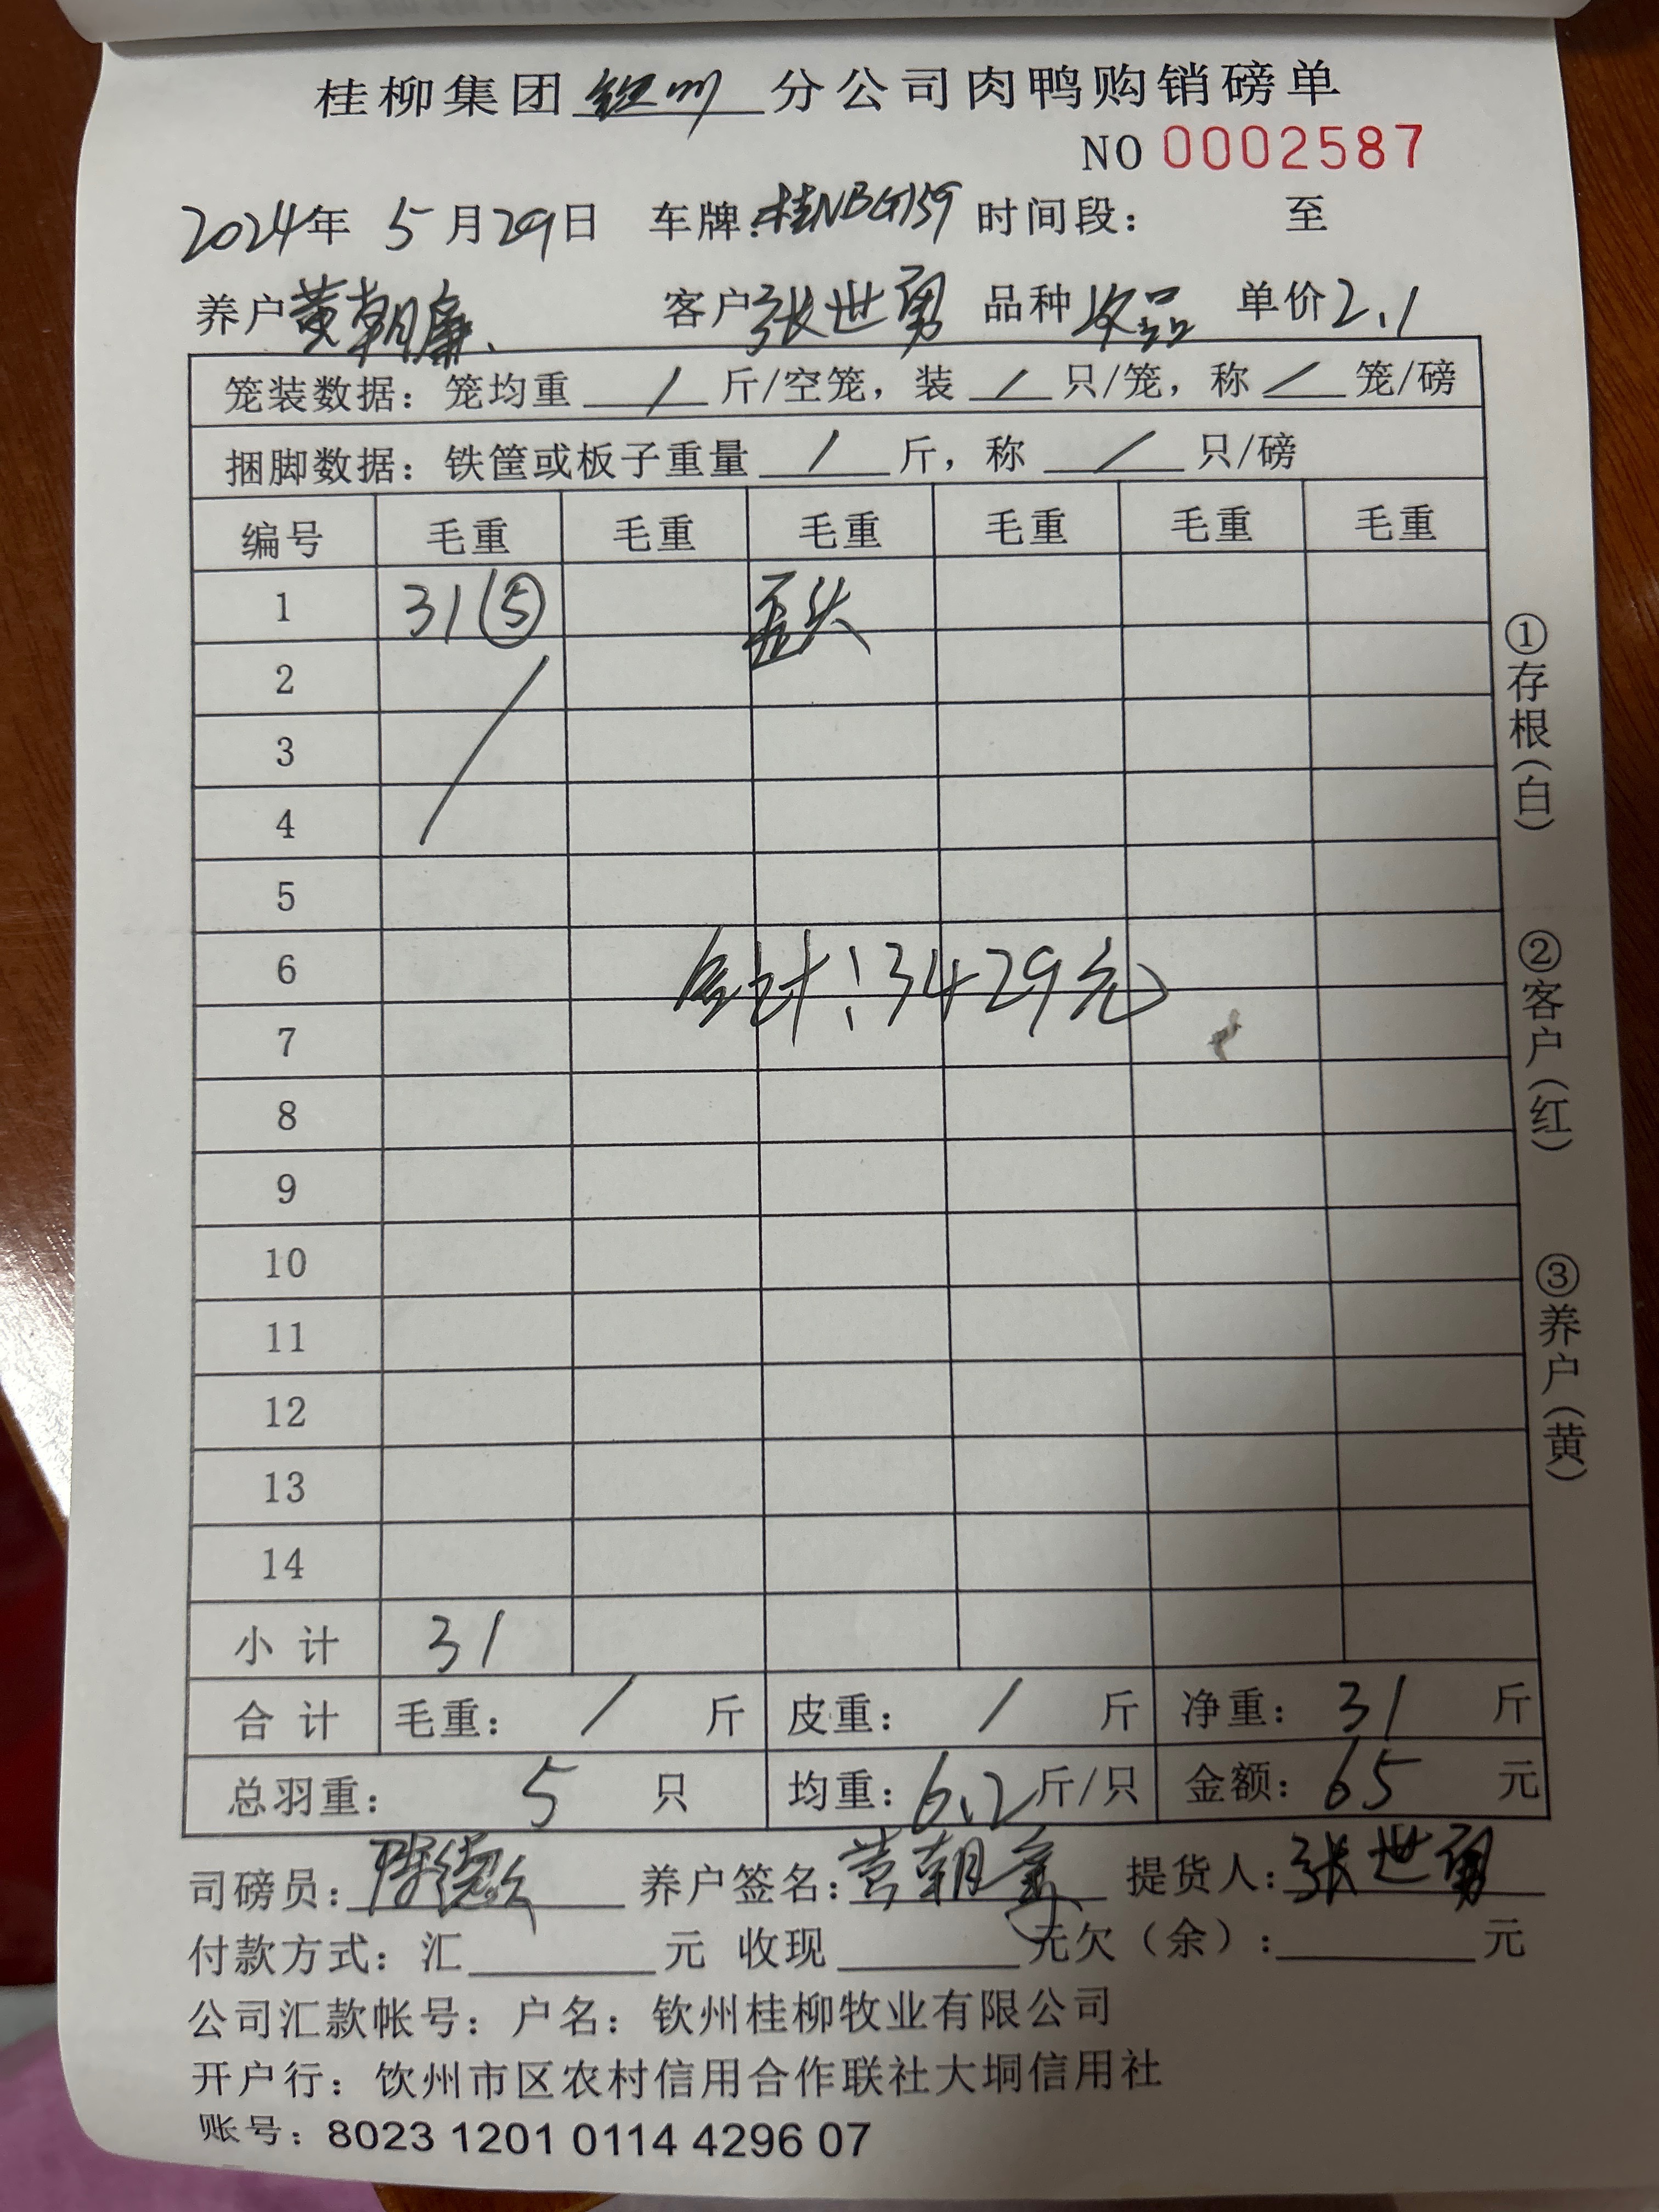 桂柳集团 钦州 分公司肉鸭购销磅单
NO 0002587
2024年 5月29日 车牌:桂NBG159 时间段: 至
养户 黄朝廉 客户 张世勇 品种 次品 单价 2.1
笼装数据: 笼均重 / 斤/空笼, 装 / 只/笼, 称 / 笼/磅
捆脚数据: 铁筐或板子重量 / 斤, 称 / 只/磅
编号 毛重 毛重 毛重 毛重 毛重 毛重
1 31 ⑤
2
3
4
5
6 合计:3429元
7
8
9
10
11
12
13
14
小计 31
合计 毛重: / 斤 皮重: / 斤 净重: 31 斤
总羽重: 5 只 均重: 6.2 斤/只 金额: 65 元
司磅员: 养户签名: 黄朝廉 提货人: 张世勇
付款方式: 汇 元 收现 元欠(余): 元
公司汇款帐号: 户名: 钦州桂柳牧业有限公司
开户行: 饮州市区农村信用合作联社大垌信用社
账号: 8023 1201 0114 4296 07
①存根(白)
②客户(红)
③养户(黄)